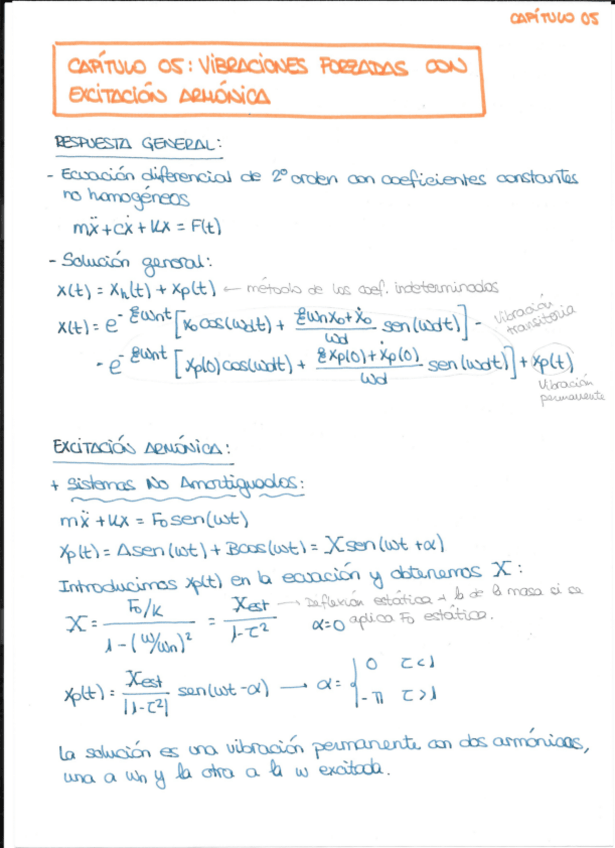 CAPÍTULO 05
CAPÍTULO 05: VIBRACIONES FORZADAS CON
EXCITACIÓN ARMÓNICA
RESPUESTA GENERAL:
- Ecuación diferencial de 2º orden con coeficientes constantes
no homogéneos
mẍ + cẋ + kx = F(t)
- Solución general:
x(t) = xh(t) + xp(t) ← método de los coef. indeterminados
x(t) = e^-ξωnt [x₀cos(ωdt) + (ξωnx₀ + ẋ₀)/ωd sen(ωdt)] - vibración transitoria
- e^-ξωnt [xp(0)cos(ωdt) + (ξxp(0) + ẋp(0))/ωd sen(ωdt)] + xp(t)
Vibración
permanente
EXCITACIÓN ARMÓNICA:
+ Sistemas No Amortiguados:
mẍ + kx = F₀sen(ωt)
xp(t) = Asen(ωt) + Bcos(ωt) = X sen(ωt + α)
Introducimos xp(t) en la ecuación y obtenemos X:
X = (F₀/k)/(1 - (ω/ωn)²) = Xest/(1 - τ²) → Deflexión estática → la de la masa si se
α=0 aplica F₀ estática.
xp(t) = Xest/|1 - τ²| sen(ωt - α) → α = { 0 τ<1
-π τ>1
La solución es una vibración permanente con dos armónicos,
una a ωn y la otra a la ω excitada.